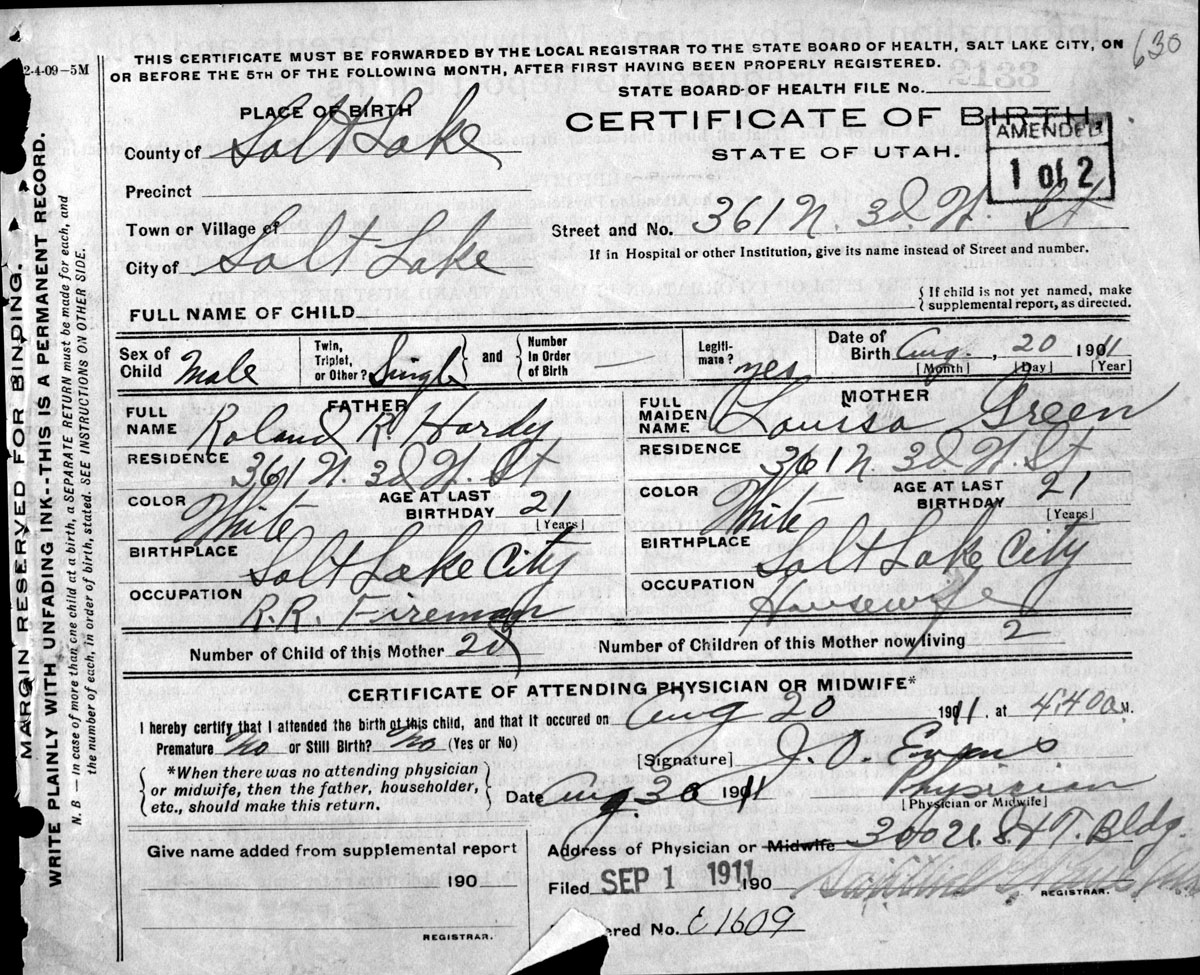 630
2-4-09-5M
THIS CERTIFICATE MUST BE FORWARDED BY THE LOCAL REGISTRAR TO THE STATE BOARD OF HEALTH, SALT LAKE CITY, ON
OR BEFORE THE 5TH OF THE FOLLOWING MONTH, AFTER FIRST HAVING BEEN PROPERLY REGISTERED.
STATE BOARD OF HEALTH FILE No.
PLACE OF BIRTH
CERTIFICATE OF BIRTH.
STATE OF UTAH.
AMENDED
1 of 2
County of Salt Lake
Precinct
Town or Village of
City of Salt Lake
Street and No. 361 N. 3d W. St
If in Hospital or other Institution, give its name instead of Street and number.
FULL NAME OF CHILD
{ If child is not yet named, make
supplemental report, as directed.
Sex of Child Male
Twin, Triplet, or Other? Single
and
Number in Order of Birth —
Legiti- mate? yes
Date of Birth Aug. , 20 1911
[Month] [Day] [Year]
FATHER
FULL NAME Roland R. Hardy
RESIDENCE 361 N. 3d W. St
COLOR White
AGE AT LAST BIRTHDAY 21
[Years]
BIRTHPLACE Salt Lake City
OCCUPATION R.R. Fireman
MOTHER
FULL MAIDEN NAME Louisa Green
RESIDENCE 361 N. 3d W. St
COLOR White
AGE AT LAST BIRTHDAY 21
[Years]
BIRTHPLACE Salt Lake City
OCCUPATION Housewife
Number of Child of this Mother 2d
Number of Children of this Mother now living 2
CERTIFICATE OF ATTENDING PHYSICIAN OR MIDWIFE*
I hereby certify that I attended the birth of this child, and that it occured on Aug 20 1911. at 4:40 a M.
Premature No or Still Birth? No (Yes or No)
*When there was no attending physician
or midwife, then the father, householder,
etc., should make this return.
[Signature] J. O. Evans
Date Aug 30 1911
Physician
[Physician or Midwife]
Address of Physician or Midwife 300 U.S. Bldg.
Give name added from supplemental report
190
REGISTRAR.
Filed SEP 1 1911 190
REGISTRAR.
ered No. E1609
MARGIN RESERVED FOR BINDING.
WRITE PLAINLY WITH UNFADING INK--THIS IS A PERMANENT RECORD.
N. B — In case of more than one child at a birth, a SEPARATE RETURN must be made for each, and
the number of each, in order of birth, stated. SEE INSTRUCTIONS ON OTHER SIDE.